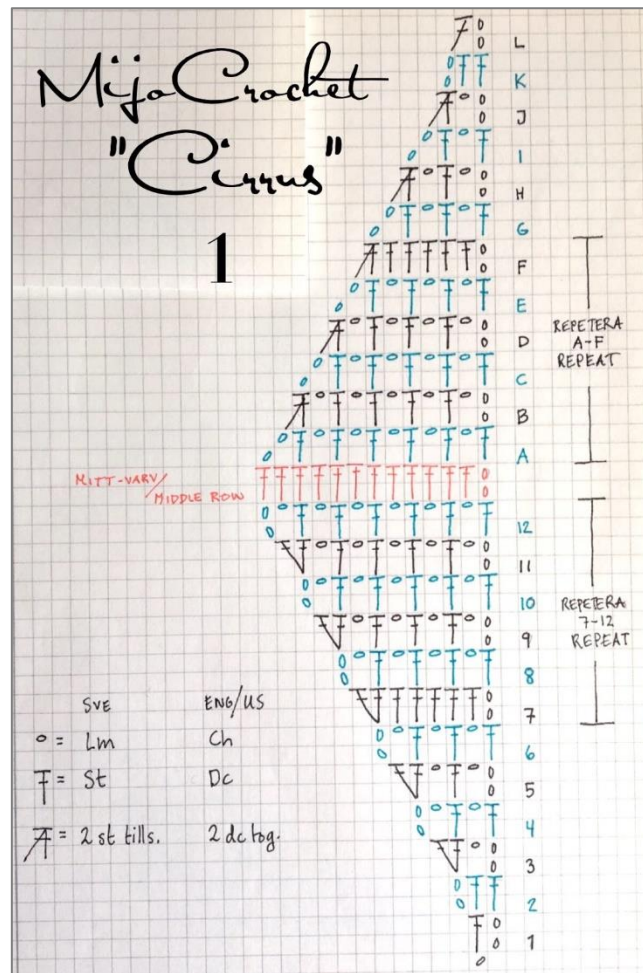 MijoCrochet
"Cirrus"
1
L
K
J
I
H
G
F
E
D
C
B
A
REPETERA
A-F
REPEAT
MITT-VARV/
MIDDLE ROW
12
11
10
9
8
7
6
5
4
3
2
1
REPETERA
7-12
REPEAT
SVE ENG/US
= Lm Ch
= St Dc
= 2 st tills. 2 dc tog.